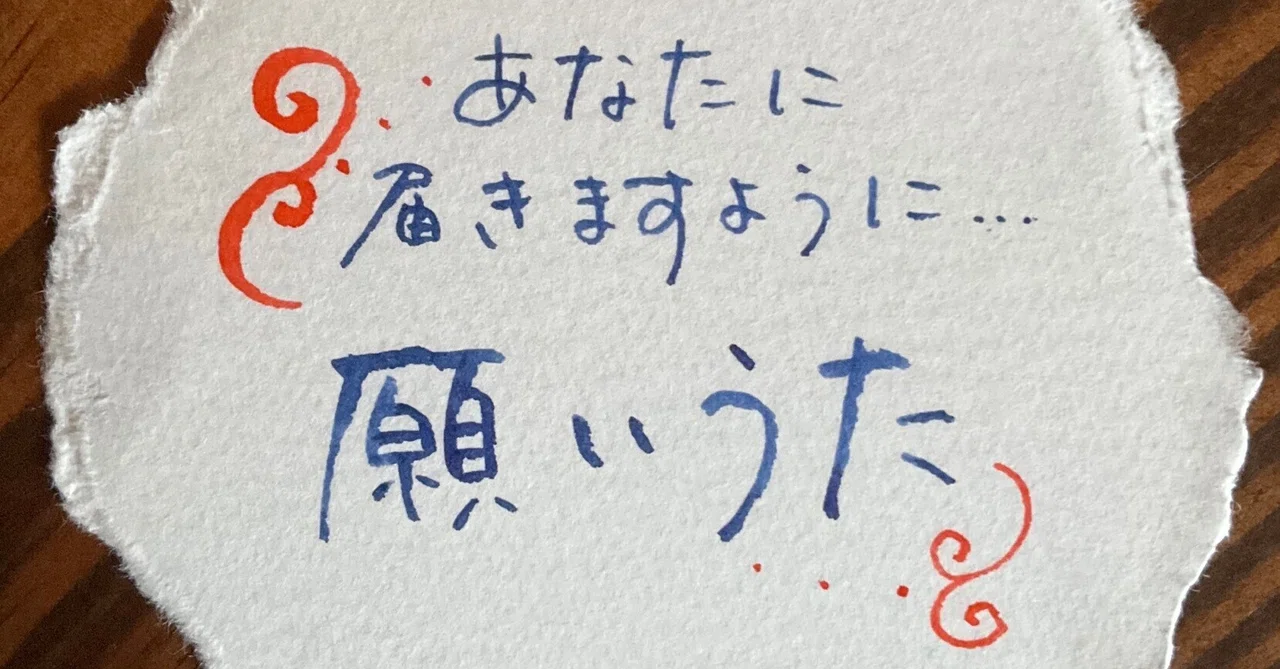 あなたに
届きますように…
願いうた